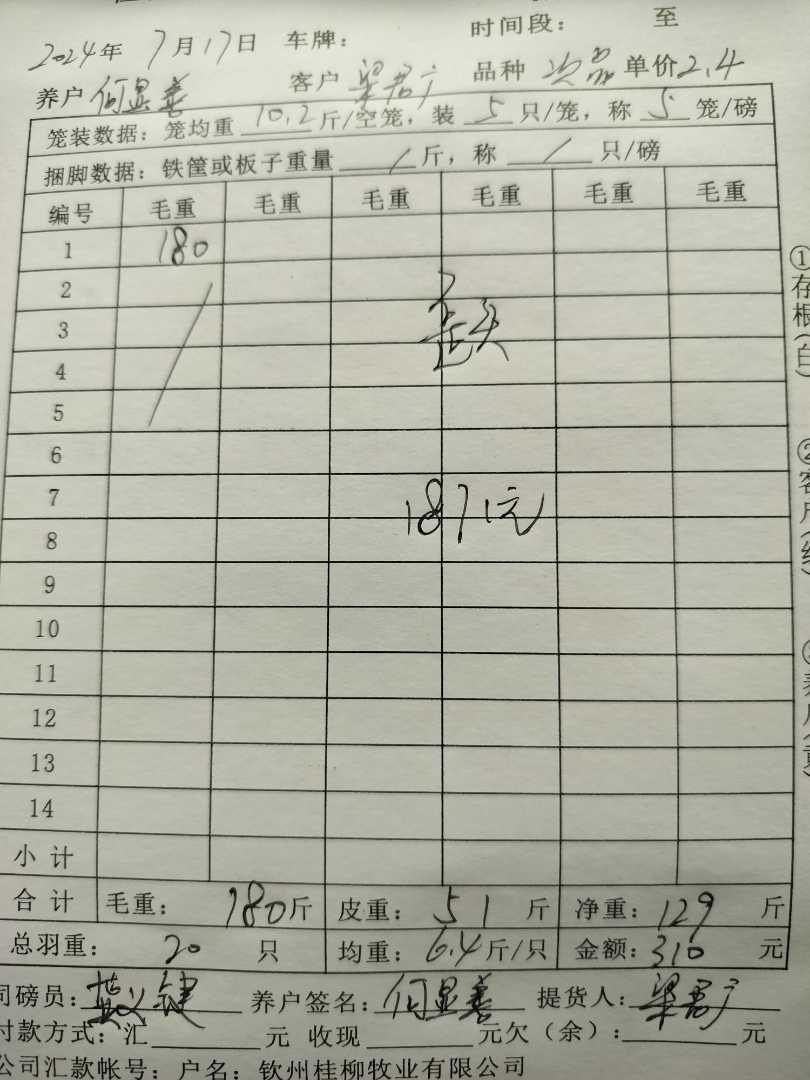 时间段： 至
2024年 7月17日 车牌：
养户 何显善 客户 梁君广 品种 次品 单价2.4
笼装数据：笼均重 10.2 斤/空笼，装 5 只/笼，称 5 笼/磅
捆脚数据：铁筐或板子重量 / 斤，称 / 只/磅
编号 毛重 毛重 毛重 毛重 毛重 毛重
1 180
2
3
4
5
6
7
1871元
8
9
10
11
12
13
14
小计
合计 毛重： 180斤 皮重： 51 斤 净重：129 斤
总羽重： 20 只 均重：6.4斤/只 金额：310 元
司磅员： 键 养户签名：何显善 提货人：梁君广
付款方式：汇 元 收现 元欠（余）： 元
公司汇款帐号：户名：钦州桂柳牧业有限公司
①存根（白）
②客户（红）